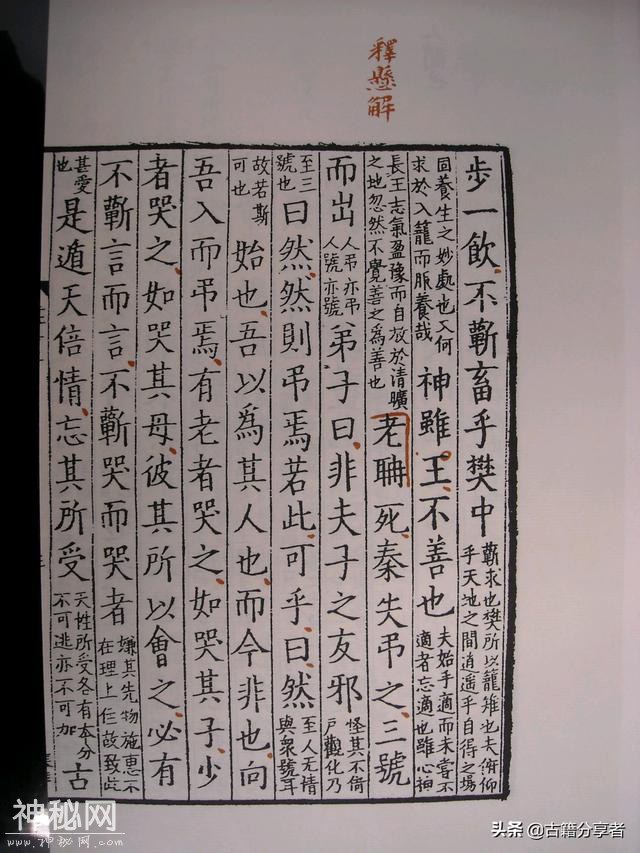 釋懸解
步一飲不蘄畜乎樊中蘄求也樊所以籠雉也夫俯仰乎天地之間逍遙乎自得之場
同養生之妙處也又何求於入籠而服養哉神雖王不善也夫始乎適而未嘗不適者忘適也雖心神
長王志氣盈豫而自放於清曠之地忽然不覺善之為善也老聃死秦失吊之三號
而出人吊亦吊人號亦號弟子曰非夫子之友邪怪其不倚戶觀化乃
至三號也曰然然則吊焉若此可乎曰然至人无情與衆號耳
故若斯可也始也吾以為其人也而今非也向
吾入而吊焉有老者哭之如哭其子少
者哭之如哭其母彼其所以會之必有
不蘄言而言不蘄哭而哭者嫌其先物施惠不在理上住故致此
甚愛也是遁天倍情忘其所受天性所受各有本分不可逃亦不可加古
神秘网
www.神秘网.com
头条 @古籍分享者